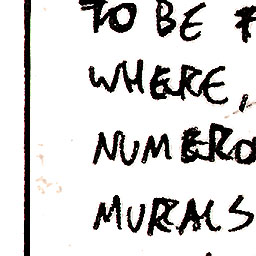 TO BE
WHERE,
NUMERO
MURALS